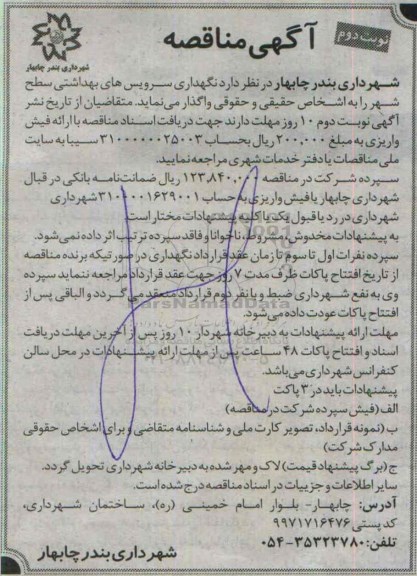 نوبت دوم
آگهی مناقصه
شهرداری بندر چابهار
شهرداری بندر چابهار در نظر دارد نگهداری سرویس های بهداشتی سطح
شهر را به اشخاص حقیقی و حقوقی واگذار می‌نماید. متقاضیان از تاریخ نشر
آگهی نوبت دوم ۱۰ روز مهلت دارند جهت دریافت اسناد مناقصه با ارائه فیش
واریزی به مبلغ ۲۰۰,۰۰۰ ریال بحساب ۳۱۰۰۰۰۰۰۲۵۰۰۳ سیبا به سایت
ملی مناقصات یا دفتر خدمات شهری مراجعه نمایید.
سپرده شرکت در مناقصه ۱۲۳,۸۴۰,۰۰۰ ریال ضمانت‌نامه بانکی در قبال
شهرداری چابهار یا فیش واریزی به حساب ۳۱۰۰۰۰۱۶۲۹۰۰۱ شهرداری
شهرداری در رد یا قبول یک یا کلیه پیشنهادات مختار است.
به پیشنهادات مخدوش، مشروط، ناخوانا و فاقد سپرده ترتیب اثر داده نمی‌شود.
سپرده نفرات اول تا سوم تا زمان عقد قرارداد نگهداری در صورتیکه برنده مناقصه
از تاریخ افتتاح پاکات ظرف مدت ۷ روز جهت عقد قرارداد مراجعه ننماید سپرده
وی به نفع شهرداری ضبط و با نفر دوم قرارداد منعقد می گردد و الباقی پس از
افتتاح پاکات عودت داده می‌شود.
مهلت ارائه پیشنهادات به دبیر خانه شهرداری ۱۰ روز پس از آخرین مهلت دریافت
اسناد و افتتاح پاکات ۴۸ ساعت پس از مهلت ارائه پیشنهادات در محل سالن
کنفرانس شهرداری می‌باشد.
پیشنهادات باید در ۳ پاکت
الف (فیش سپرده شرکت در مناقصه)
ب (نمونه قرارداد، تصویر کارت ملی و شناسنامه متقاضی و برای اشخاص حقوقی
مدارک شرکت)
ج (برگ پیشنهاد قیمت) لاک و مهر شده به دبیر خانه شهرداری تحویل گردد.
سایر اطلاعات و جزییات در اسناد مناقصه درج شده است.
آدرس: چابهار- بلوار امام خمینی (ره)، ساختمان شهرداری،
کد پستی ۹۹۷۱۷۱۶۴۷۶
تلفن: ۳۵۳۲۳۷۸۰-۰۵۴
شهرداری بندر چابهار